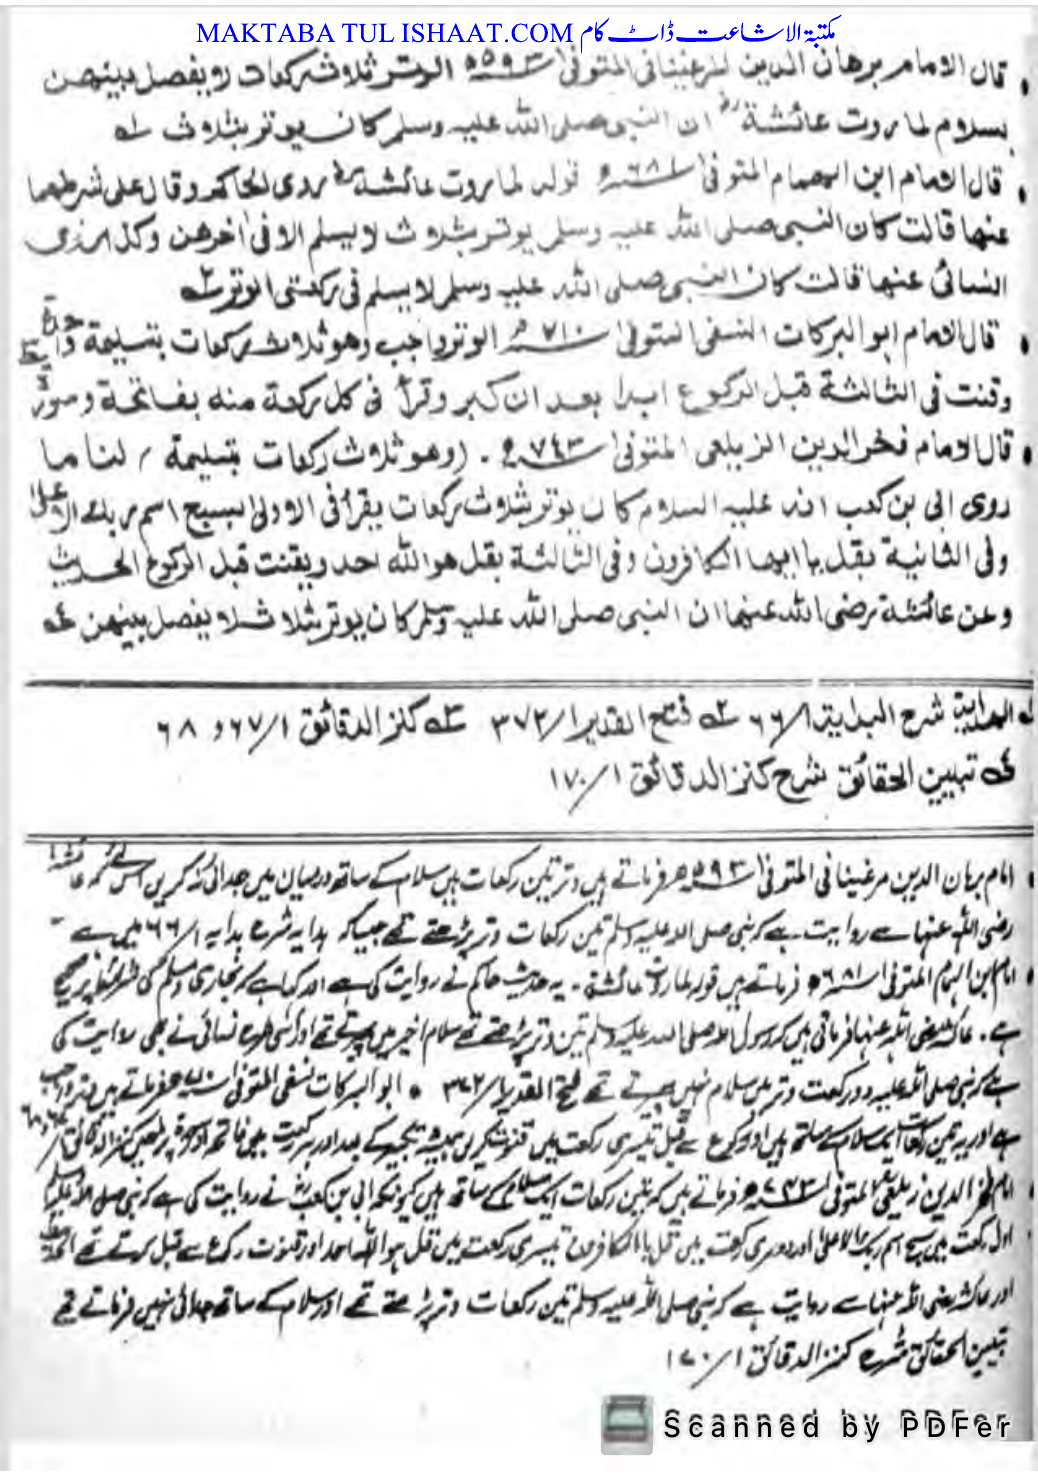 MAKTABA TUL ISHAAT.COM مکتبۃ الاشاعت ڈاٹ کام
قال الامام برهان الدين المرغينانى المتوفىٰ ۵۹۳ھ الوتر ثلاث ركعات لا يفصل بينهن
بسلام لما روت عائشة رض ان النبى صلى الله عليه وسلم كان يوتر بثلاث لہ
قال الامام ابن الهمام المتوفىٰ ۶۸۱ھ قوله لما روت عائشة رض روى الحاكم وقال على شرطهما
عنها قالت كان النبى صلى الله عليه وسلم يوتر بثلاث لا يسلم الا فى اخرهن وكذا روى
النسائى عنها قالت كان النبى صلى الله عليه وسلم لا يسلم فى ركعتى الوتر ۲ہ
قال الامام ابو البركات النسفى المتوفىٰ ۷۱۰ھ الوتر واجب وهو ثلاث ركعات بتسليمة
وقنت فى الثالثة قبل الركوع ابدا بعد ان كبر وقرأ فى كل ركعة منه بفاتحة وسورة
قال الامام فخر الدين الزيلعى المتوفىٰ ۷۴۳ھ . (وهو ثلاث ركعات بتسليمة / لنا ما
روى ابى بن كعب انه عليه السلام كان يوتر بثلاث ركعات يقرأ فى الاولىٰ بسبح اسم ربك الاعلىٰ
وفى الثانية بقل يا ايها الكافرون وفى الثالثة بقل هو الله احد ويقنت قبل الركوع الحديث
وعن عائشة رضى الله عنها ان النبى صلى الله عليه وسلم كان يوتر بثلاث لا يفصل بينهن ۴ہ
لہ الهداية شرح البداية ۱/۶۶ ۲ہ فتح القدير ۱/۳۷۲ ۳ہ كنز الدقائق ۱/۶۷ و ۶۸
۴ہ تبيين الحقائق شرح كنز الدقائق ۱/۱۷۰
امام برہان الدین مرغینانی المتوفیٰ ۵۹۳ھ فرماتے ہیں وتر تین رکعات ہیں سلام کے ساتھ درمیان میں جدائی نہ کریں اس لئے کہ عائشہ
رضی اللہ عنہا سے روایت ہے کہ نبی صلی اللہ علیہ وسلم تین رکعات وتر پڑھتے تھے جیسا کہ ہدایہ شرح بدایہ ۱/۶۶ میں ہے
امام ابن الہمام المتوفیٰ ۶۸۱ھ فرماتے ہیں قولہ لما روت عائشۃ ۔ یہ حدیث حاکم نے روایت کی ہے اور کہا ہے کہ بخاری و مسلم کی شرط پر صحیح
ہے ۔ عائشہ رضی اللہ عنہا فرماتی ہیں کہ رسول اللہ صلی اللہ علیہ وسلم تین وتر پڑھتے تھے سلام اخیر میں پھیرتے تھے اور اسی طرح نسائی نے بھی روایت کی
ہے کہ نبی صلی اللہ علیہ دو رکعت وتر میں سلام نہیں پھیرتے تھے فتح القدیر ۱/۳۷۲ • ابو البرکات نسفی المتوفیٰ ۷۱۰ھ فرماتے ہیں وتر واجب
ہے اور یہ تین رکعات ایک سلام کے ساتھ ہیں اور رکوع سے قبل تیسری رکعت میں قنوت کریں ہمیشہ تکبیر کے بعد اور ہر رکعت میں فاتحہ اور سورۃ پڑھیں کنز الدقائق
امام فخر الدین زیلعی المتوفیٰ ۷۴۳ھ فرماتے ہیں کہ تین رکعات ایک سلام کے ساتھ ہیں کیونکہ ابی بن کعب نے روایت کی ہے کہ نبی صلی اللہ علیہ وسلم
اول رکعت میں سبح اسم ربک الاعلیٰ اور دوسری رکعت میں قل یا ایہا الکافرون تیسری رکعت میں قل ہو اللہ احد اور قنوت رکوع سے قبل کرتے تھے الحدیث
اور عائشہ رضی اللہ عنہا سے روایت ہے کہ نبی صلی اللہ علیہ وسلم تین رکعات وتر پڑھتے تھے اور سلام کے ساتھ جدائی نہیں فرماتے تھے
تبیین الحقائق شرح کنز الدقائق ۱/۱۷۰
Scanned by PDFer